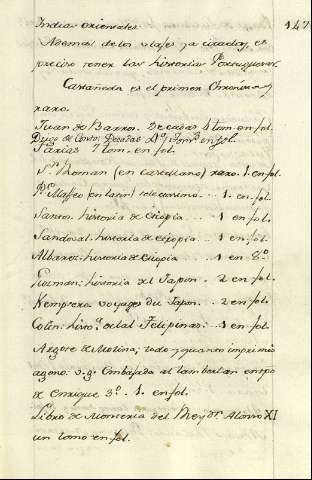 147
Indias orientales
Ademas de los viajes ya citados, es
preciso tener las historias Portuguesas.
Castañeda es el primer Chronista y
raro.
Juan de Barros. Decadas 4 tom. en fol.
Diego de Couto. Decadas en fol.
Farias 7 tom. en fol.
Sn. Roman (en Castellano) raro. 1. en fol.
Pe. Mafeo (en latin) 1. en fol.
Santos. historia de Etiopia .. 1 en fol.
Sandoval. historia de etiopia .. 1 en fol.
Albarez. historia de Etiopia 1 en 8.º
Guzman; historia del Japon. 2 en fol.
Kempfero. voyages du Japon. 2 en fol.
Colin. histª. de las Felipinas. 1 en fol.
Argote de Molina; todo quanto imprimió
v.g. Embajada al tamborlan
de Enrique 3º. 1. en fol.
Libro de Monteria del Rey Dn. Alonso XI
un tomo en fol.